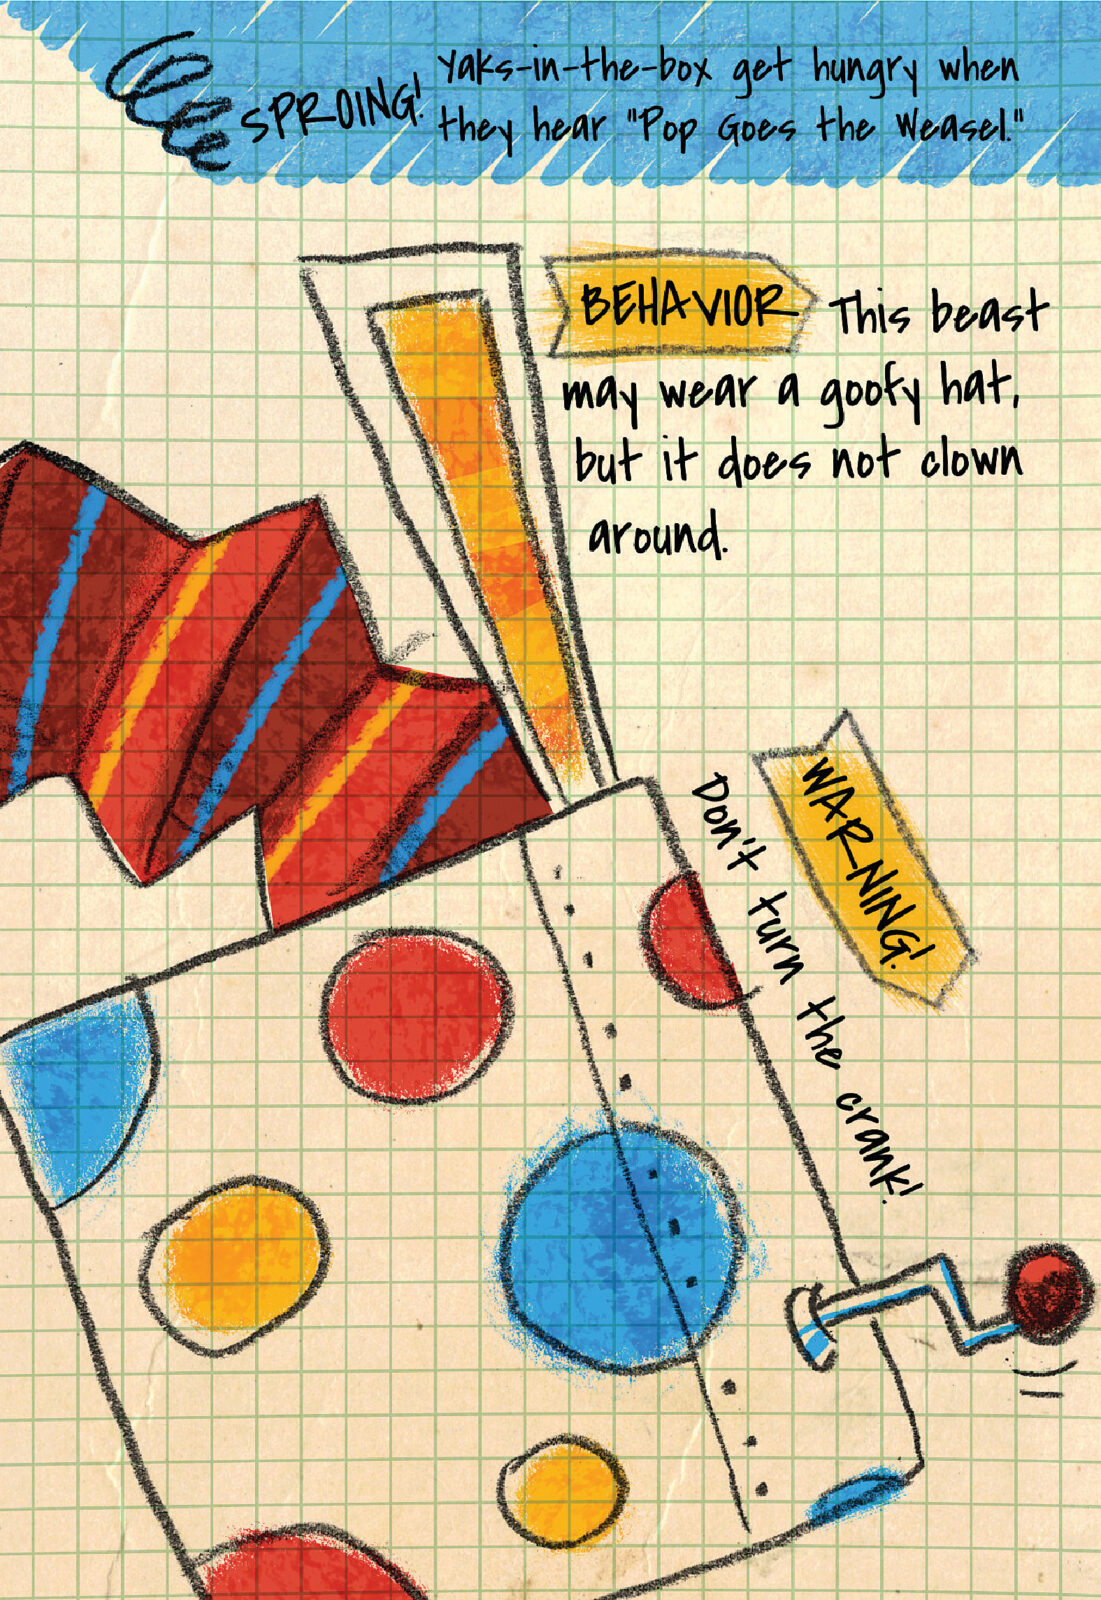 SPROING!
Yaks-in-the-box get hungry when
they hear "Pop Goes the Weasel."
BEHAVIOR This beast
may wear a goofy hat,
but it does not clown
around.
WARNING!
Don't turn the crank!